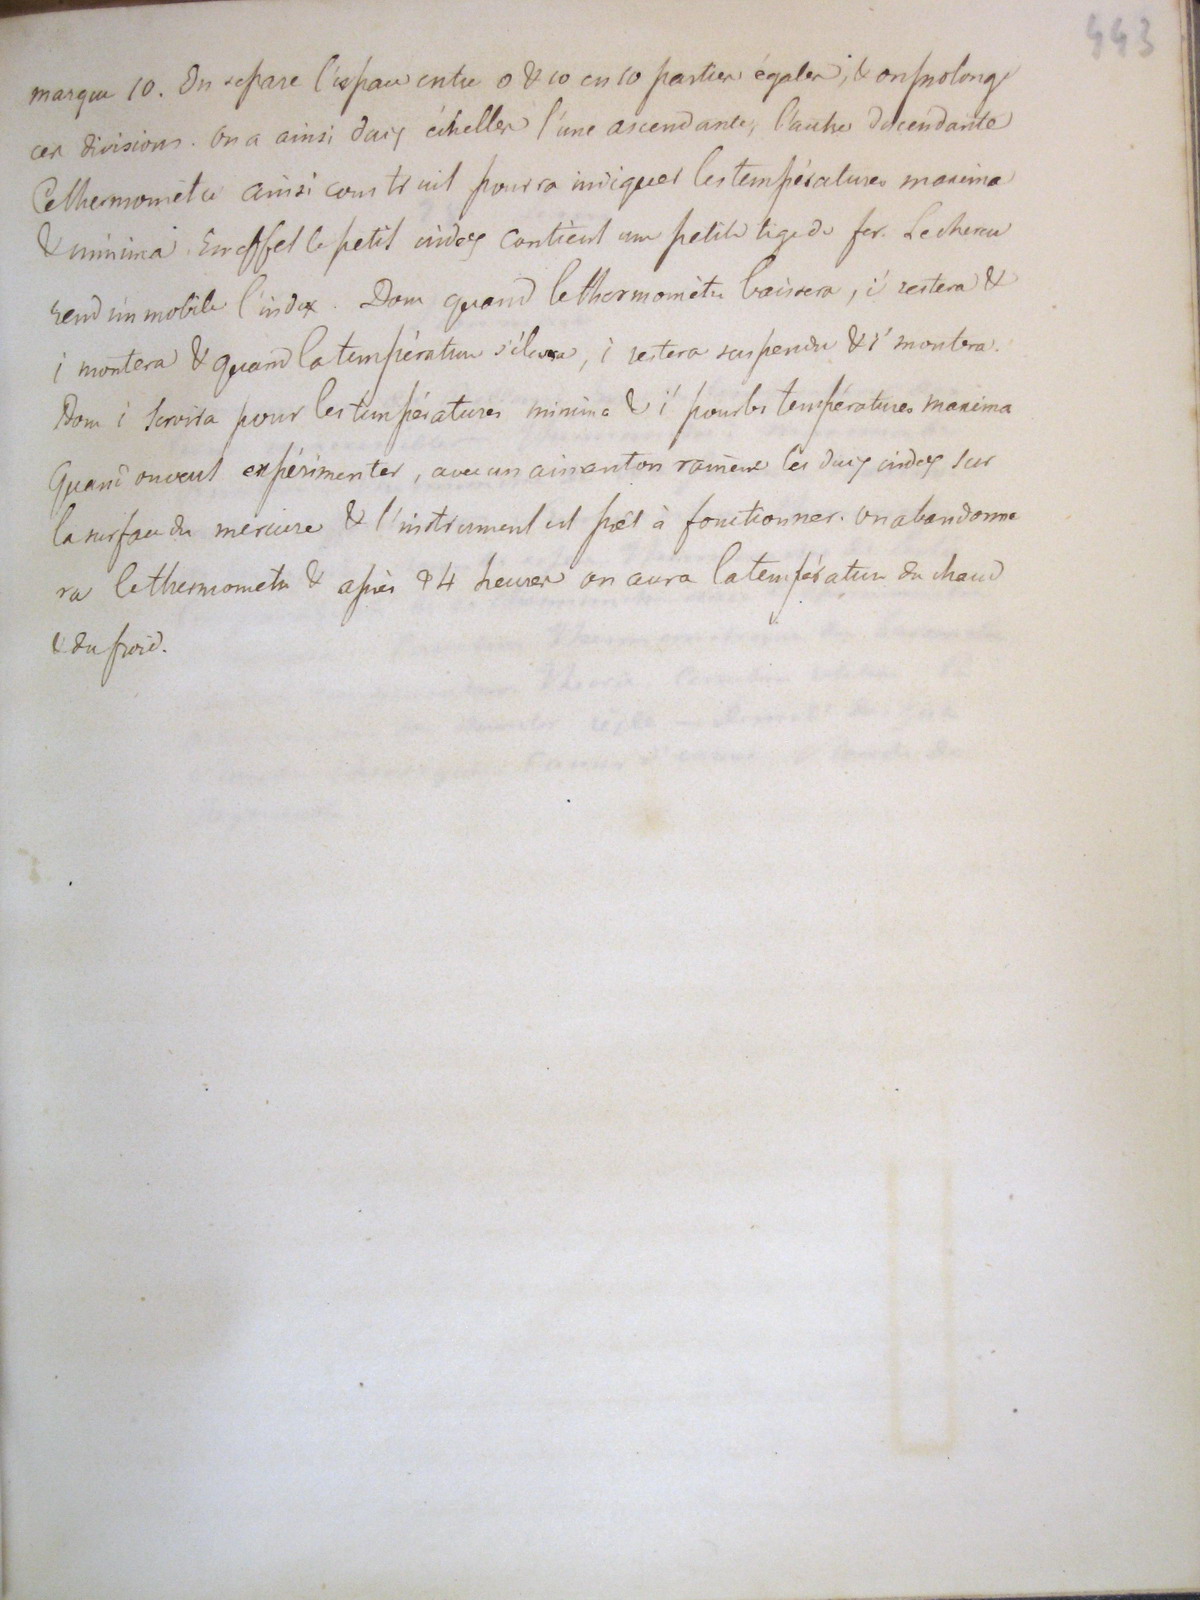 443
marque 10. On separe l'espace entre 0 & 10 en 10 parties égales, & on prolonge
ces divisions. On a ainsi deux échelles l'une ascendante, l'autre descendante
Ce thermomètre ainsi construit pourra indiquer les températures maxima
& minima. En effet le petit index contient une petite tige de fer. Le cheveu
rend immobile l'index. Donc quand le thermomètre baissera, i' restera &
i montera & quand la température s'élevera, i restera suspendu & i' montera.
Donc i servira pour les températures minima & i' pour les températures maxima
Quand on veut expérimenter, avec un aimant on ramène les deux index sur
la surface du mercure & l'instrument est prêt à fonctionner. On abandonne
ra le thermomètre & après 24 heures on aura la température du chaud
& du froid.